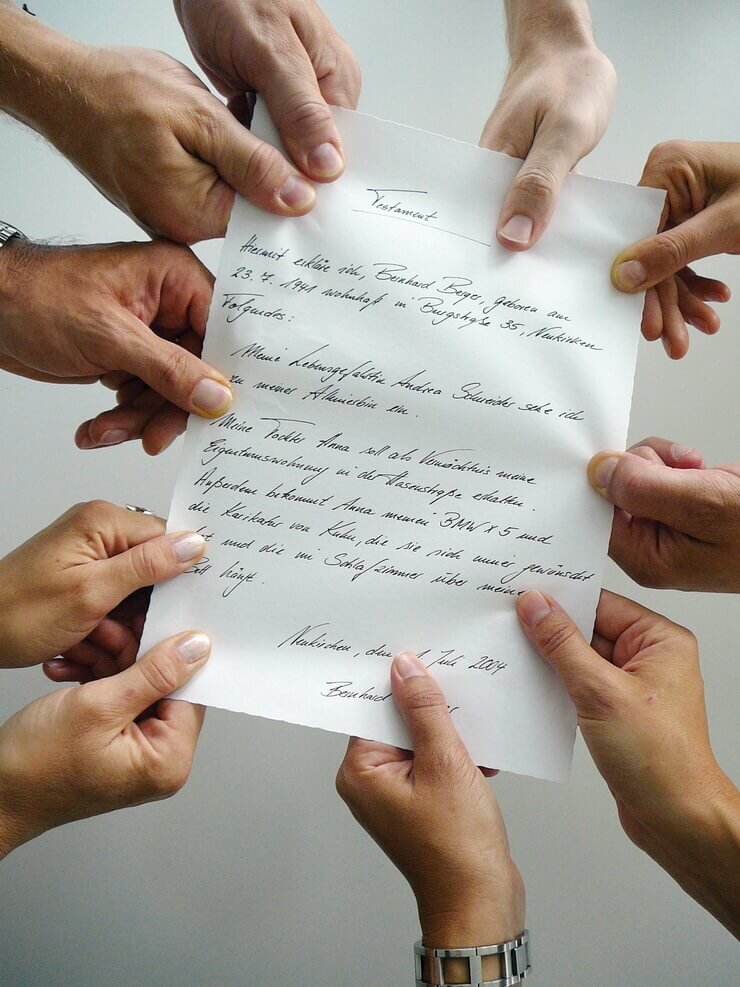 Testament
Hiermit erkläre ich, Bernhard Berger, geboren am
23. 7. 1941 wohnhaft in Burgstraße 35, Neukirchen
Folgendes:
Meine Lebensgefährtin Andrea Schneider setze ich
zu meiner Alleinerbin ein.
Meine Tochter Anna soll als Vermächtnis meine
Eigentumswohnung in der Hasenstraße erhalten.
Außerdem bekommt Anna meinen BMW X5 und
die Karikatur von Kuhn, die sie sich immer gewünscht
und die im Schlafzimmer über meinem
Bett hängt.
Neukirchen, den 1. Juli 2004
Bernhard